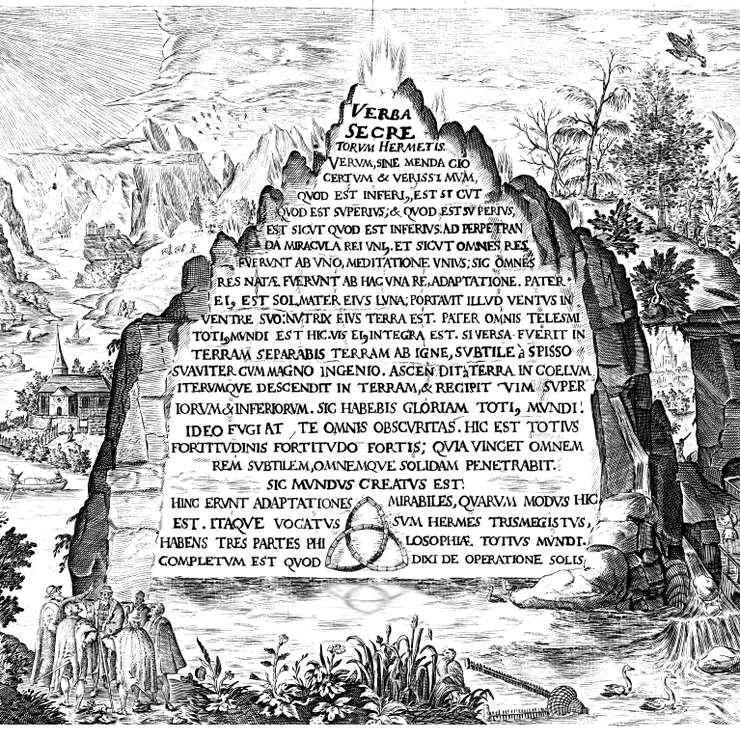 VERBA
SECRE
TORUM HERMETIS.
VERUM, SINE MENDACIO
CERTUM & VERISSIMUM,
QUOD EST INFERI, EST SICUT
QUOD EST SUPERIUS; & QUOD EST SUPERIUS,
EST SICUT QUOD EST INFERIUS. AD PERPETRAN
DA MIRACULA REI UNI, ET SICUT OMNES RES
FUERUNT AB UNO, MEDITATIONE UNIUS; SIC OMNES
RES NATÆ FUERUNT AB HAC UNA RE, ADAPTATIONE. PATER
EI, EST SOL, MATER EIUS LUNA; PORTAVIT ILLUD VENTUS IN
VENTRE SUO; NUTRIX EIUS TERRA EST. PATER OMNIS TELESMI
TOTI, MUNDI EST HIC. VIS EI, INTEGRA EST. SI VERSA FUERIT IN
TERRAM SEPARABIS TERRAM AB IGNE, SUBTILE à SPISSO
SUAVITER CUM MAGNO INGENIO. ASCENDIT à TERRA IN COELUM
ITERUMQUE DESCENDIT IN TERRAM, & RECIPIT VIM SUPER
IORUM & INFERIORUM. SIC HABEBIS GLORIAM TOTI, MUNDI!
IDEO FUGIAT TE OMNIS OBSCURITAS. HIC EST TOTIUS
FORTITUDINIS FORTITUDO FORTIS; QUIA VINCET OMNEM
REM SUBTILEM, OMNEMQUE SOLIDAM PENETRABIT.
SIC MUNDUS CREATUS EST!
HINC ERUNT ADAPTATIONES MIRABILES, QUARUM MODUS HIC
EST. ITAQUE VOCATUS SUM HERMES TRISMEGISTUS,
HABENS TRES PARTES PHI LOSOPHIÆ TOTIUS MUNDI.
COMPLETUM EST QUOD DIXI DE OPERATIONE SOLIS